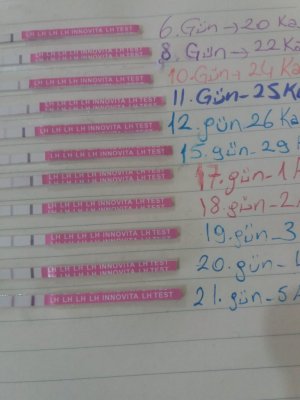 LH LH LH LH INNOVITA LH TEST 6.Gün → 20 Ka
LH LH LH LH INNOVITA LH TEST 8. Gün → 22 Ka
LH LH LH LH INNOVITA LH TEST 10.Gün → 24 Ka
LH LH LH LH INNOVITA LH TEST 11.Gün - 25 Ka
LH LH LH LH INNOVITA LH TEST 12.gün 26 Ka
LH LH LH LH INNOVITA LH TEST 15.gün - 29
LH LH LH LH INNOVITA LH TEST 17.gün - 1
LH LH LH LH INNOVITA LH TEST 18.gün - 2
LH LH LH LH INNOVITA LH TEST 19.gün - 3
LH LH LH LH INNOVITA LH TEST 20.gün -
LH LH LH LH INNOVITA LH TEST 21.gün - 5 A